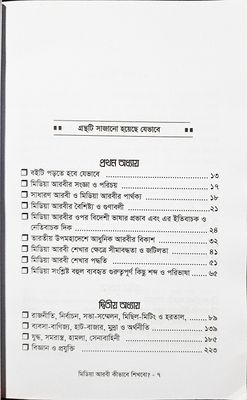 গ্রন্থটি সাজানো হয়েছে যেভাবে
প্রথম অধ্যায়
বইটি পড়তে হবে যেভাবে ১৩
মিডিয়া আরবীর সংজ্ঞা ও পরিচয় ১৭
সাধারণ আরবী ও মিডিয়া আরবীর পার্থক্য ১৮
মিডিয়া আরবীর বৈশিষ্ট্য ও গুণাবলী ২১
মিডিয়া আরবীর ওপর বিদেশী ভাষার প্রভাব এবং এর ইতিবাচক ও
নেতিবাচক দিক ২৪
ভারতীয় উপমহাদেশে আধুনিক আরবীর বিকাশ ৩২
মিডিয়া আরবী শেখার ক্ষেত্রে সীমাবদ্ধতা ও জটিলতা ৪১
মিডিয়া আরবী শেখার পদ্ধতি ৫১
মিডিয়া সংশ্লিষ্ট বহুল ব্যবহৃত গুরুত্বপূর্ণ কিছু শব্দ ও পরিভাষা ৬৫
দ্বিতীয় অধ্যায়
রাজনীতি, নির্বাচন, সভা-সম্মেলন, মিছিল-মিটিং ও হরতাল, ৮৯
ব্যবসা-বাণিজ্য, হাট-বাজার, মুদ্রা ও অর্থনীতি ১৩৯
যুদ্ধ, সমরাস্ত্র, হামলা, সেনাবাহিনী ১৮৫
বিজ্ঞান ও প্রযুক্তি ২২৩
মিডিয়া আরবী কীভাবে শিখবো? - ৭